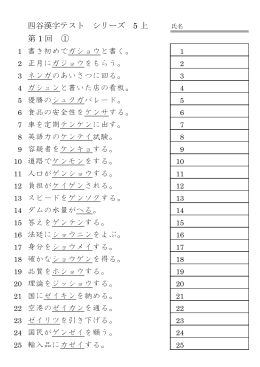 四谷漢字テスト　シリーズ　5 上　氏名
第1回　①
1 書き初めでガショウと書く。 1
2 正月にガジョウをもらう。 2
3 ネンガのあいさつに回る。 3
4 ガシュンと書いた店の看板。 4
5 優勝のシュクガパレード。 5
6 食品の安全性をケンサする。 6
7 車を定期テンケンに出す。 7
8 英語力のケンテイ試験。 8
9 容疑者をケンキョする。 9
10 道路でケンモンをする。 10
11 人口がゲンショウする。 11
12 負担がケイゲンされる。 12
13 スピードをゲンソクする。 13
14 ダムの水量がへる。 14
15 答えをゲンテンする。 15
16 法廷にショウニンをよぶ。 16
17 身分をショウメイする。 17
18 確かなショウゲンを得る。 18
19 品質をホショウする。 19
20 理論をジッショウする。 20
21 国にゼイキンを納める。 21
22 空港のゼイカンを通る。 22
23 ゼイリツを引き下げる。 23
24 国民がゲンゼイを願う。 24
25 輸入品にカゼイする。 25